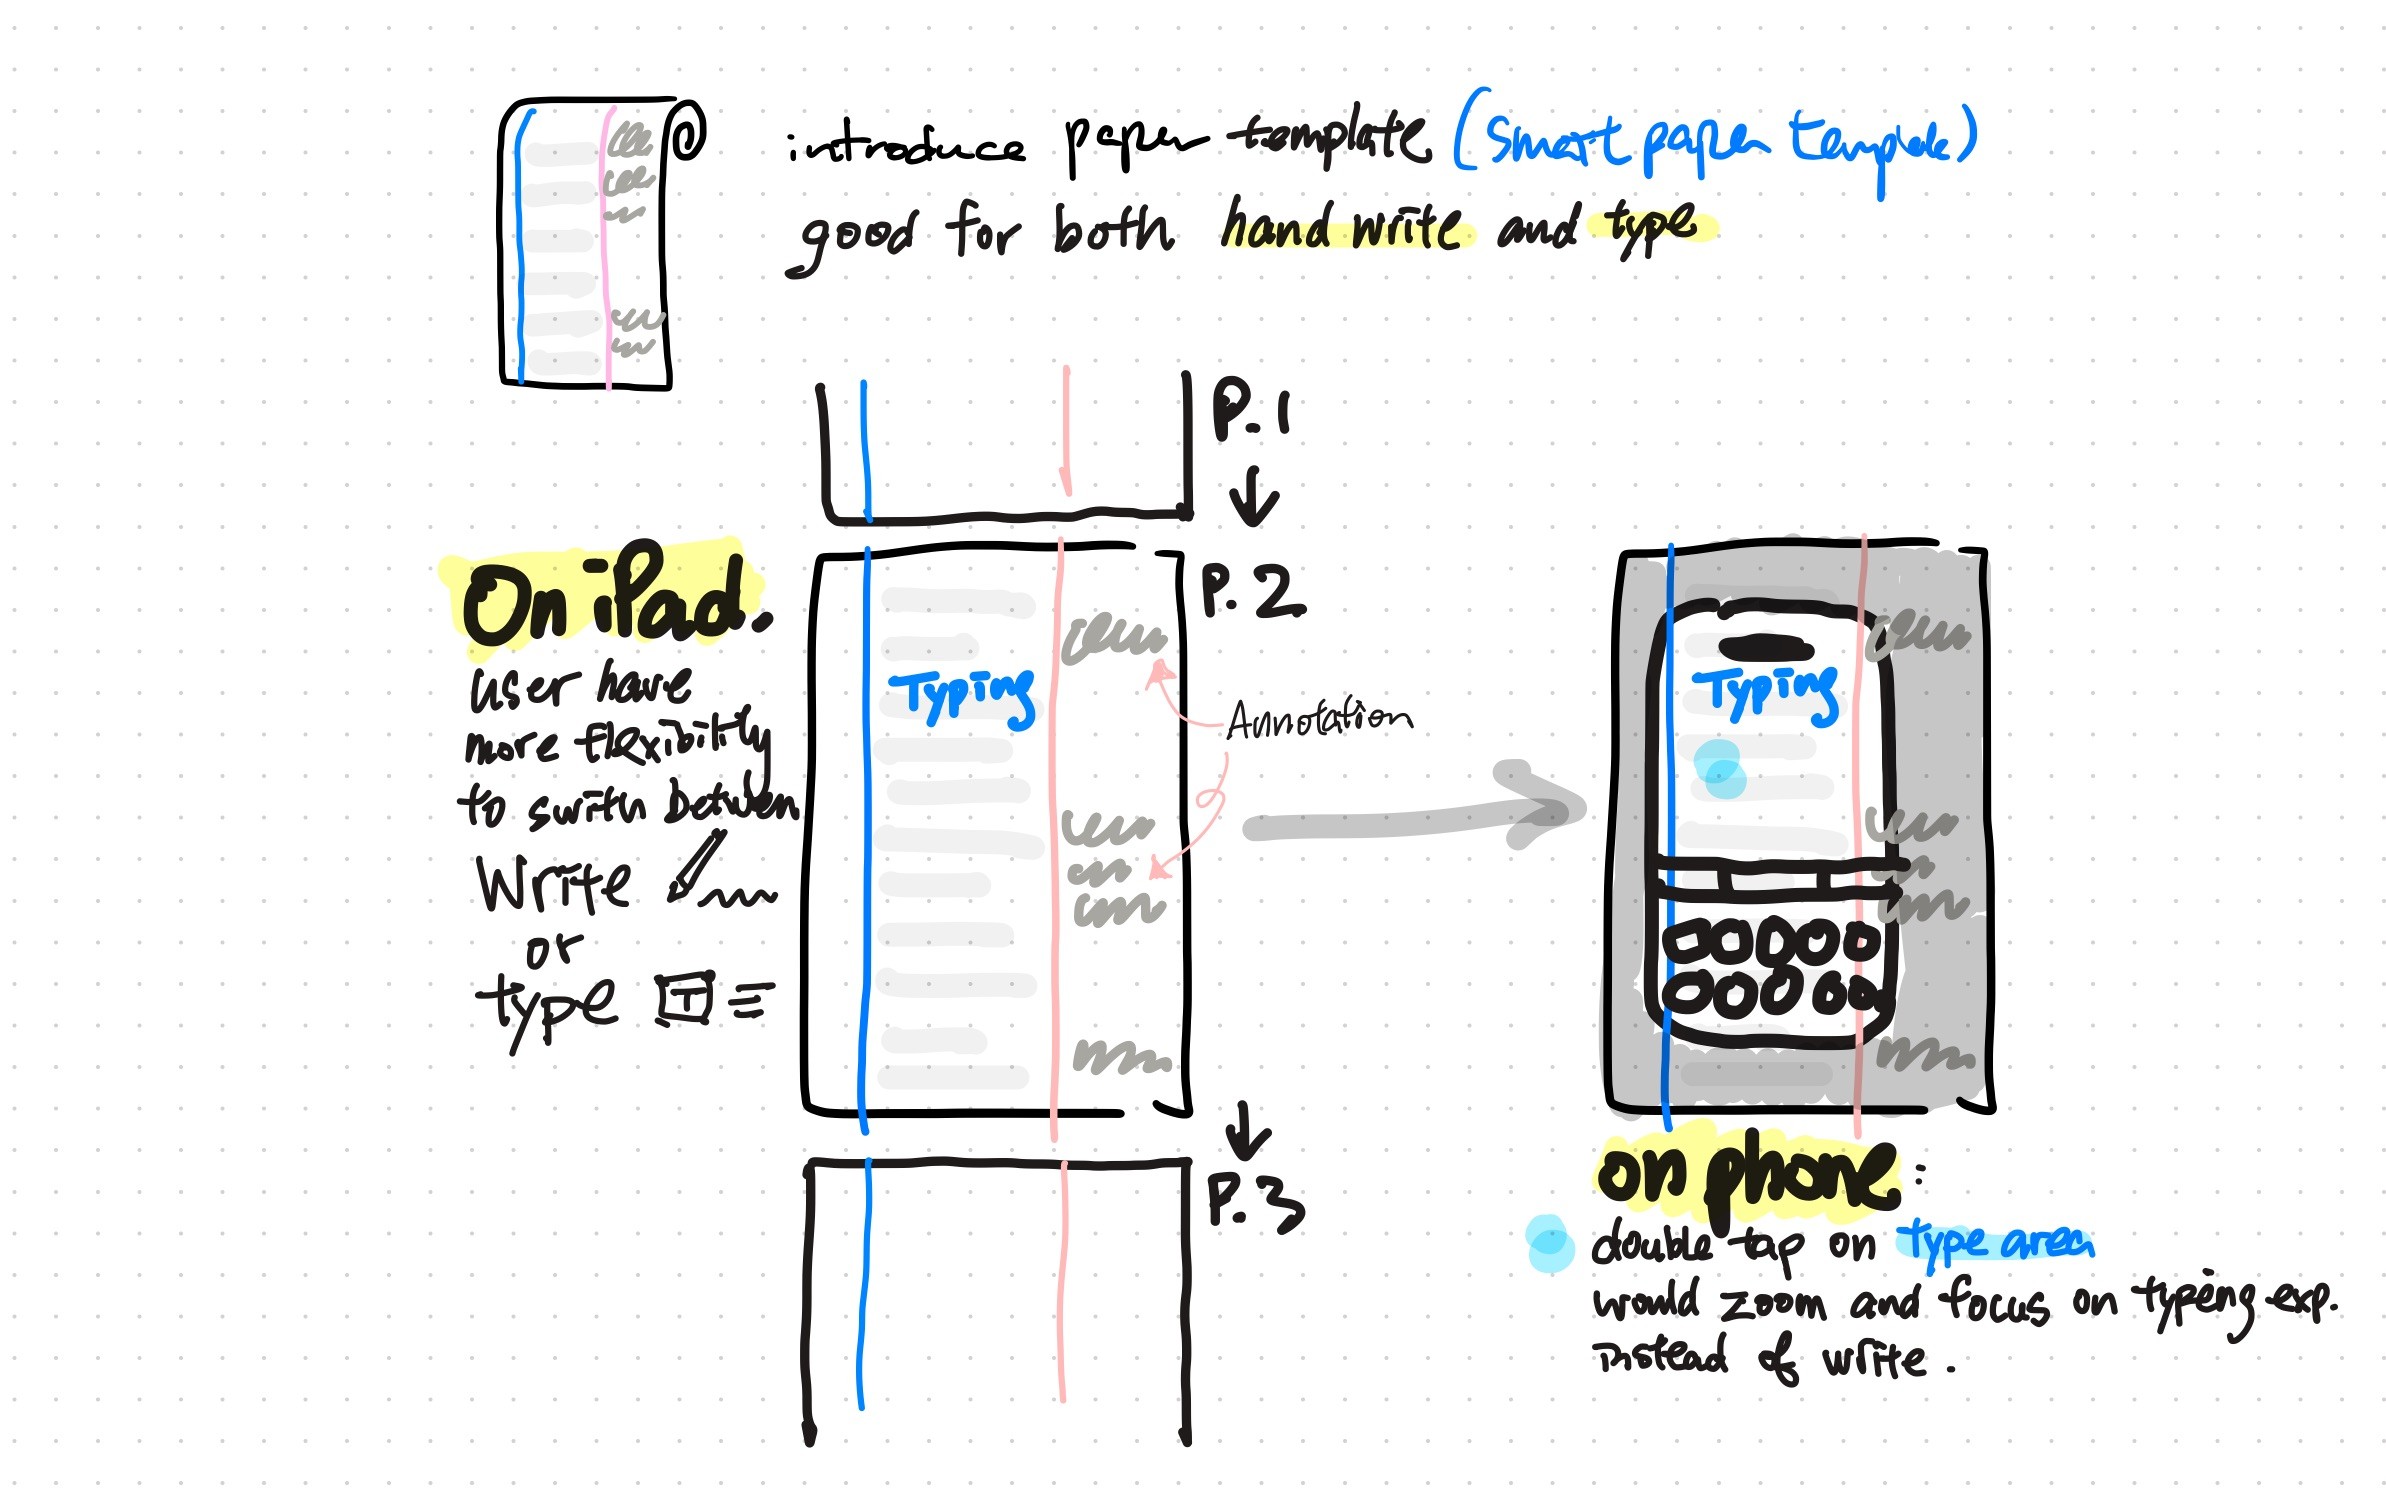 introduce paper template (Smart paper template)
good for both hand write and type
P.1
On iPad.
user have
more flexibility
to switch between
Write
or
type T
P.2
Typing
Annotation
P.3
Typing
on phone:
double tap on type area
would zoom and focus on typing exp.
instead of write.